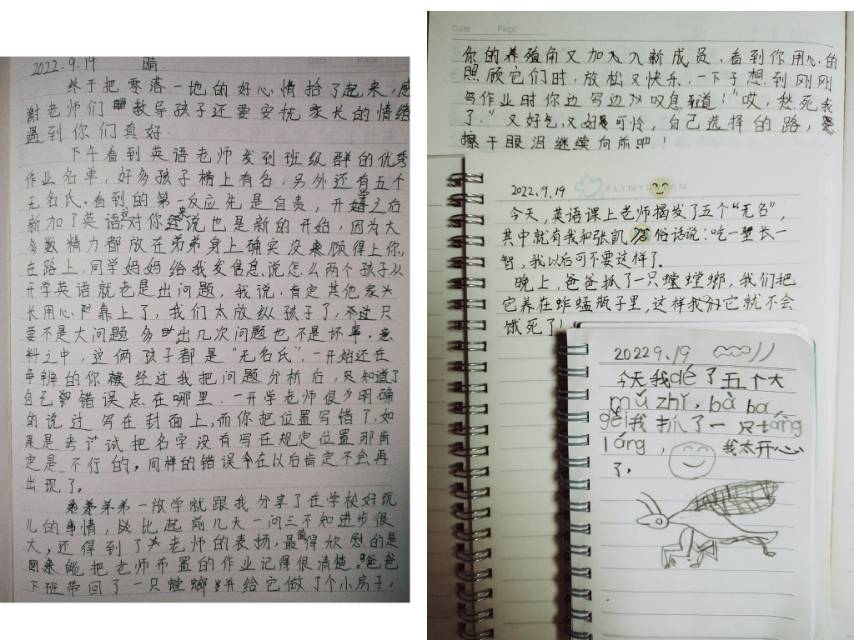 2022.9.19 晴.
终于把零落一地的好心情拾了起来,感
谢老师们教导孩子还要安抚家长的情绪
遇到你们真好.
下午看到英语老师发到班级群的优秀
作业名单,好多孩子榜上有名,另外还有五个
无名氏。看到的第一反应先是自责,开学之后
新加了英语对你来说也是新的开始,因为大
多数精力都放在弟弟身上确实没来顾得上你。
在路上,同学妈妈给我发信息说怎么两个孩子从
开学英语就老是出问题,我说,肯定其他家长
长用心靠上了,我们太放纵孩子了,不过只
要不是大问题多出几次问题也不是坏事。意
料之中,这俩孩子都是“无名氏”,一开始还在
争辨的你被经过我把问题分析后,只知道了
自己错误点在哪里.一开学老师很明确
的说过写在封面上,而你把位置写错了,如
果是考试把名字没有写在规定位置那肯
定是不行的,同样的错误今在以后肯定不会再
出现了。
弟弟一放学就跟我分享了在学校好玩
儿的事情,比起前几天一问三不知进步很
大,还得到了老师的表扬,最得欣慰的是
回来能把老师布置的作业记得很清楚。爸爸
下班带回了一只螳螂并给它做了个小房子,
Date Page
你的养殖角又加入入新成员,看到你用心的
照顾它们时,放松又快乐.一下子想到刚刚
写作业时你边写边叹息道:“哎,愁死我
了.”又好气又好可怜,自己选择的路,
擦干眼泪继续向前吧!
2022.9.19
今天,英语课上老师揭发了五个“无名”,
其中就有我和张凯 俗话说:吃一堑长一
智,我以后可不要这样了。
晚上,爸爸抓了一只螳螂,我们把
它养在蚱蜢瓶子里,这样我们它就不会
饿死了!
2022 9、19
今天我dé了五个大
mǔ zhǐ. bà ba
gěi我抓了一只táng
láng, 我太开心
了。